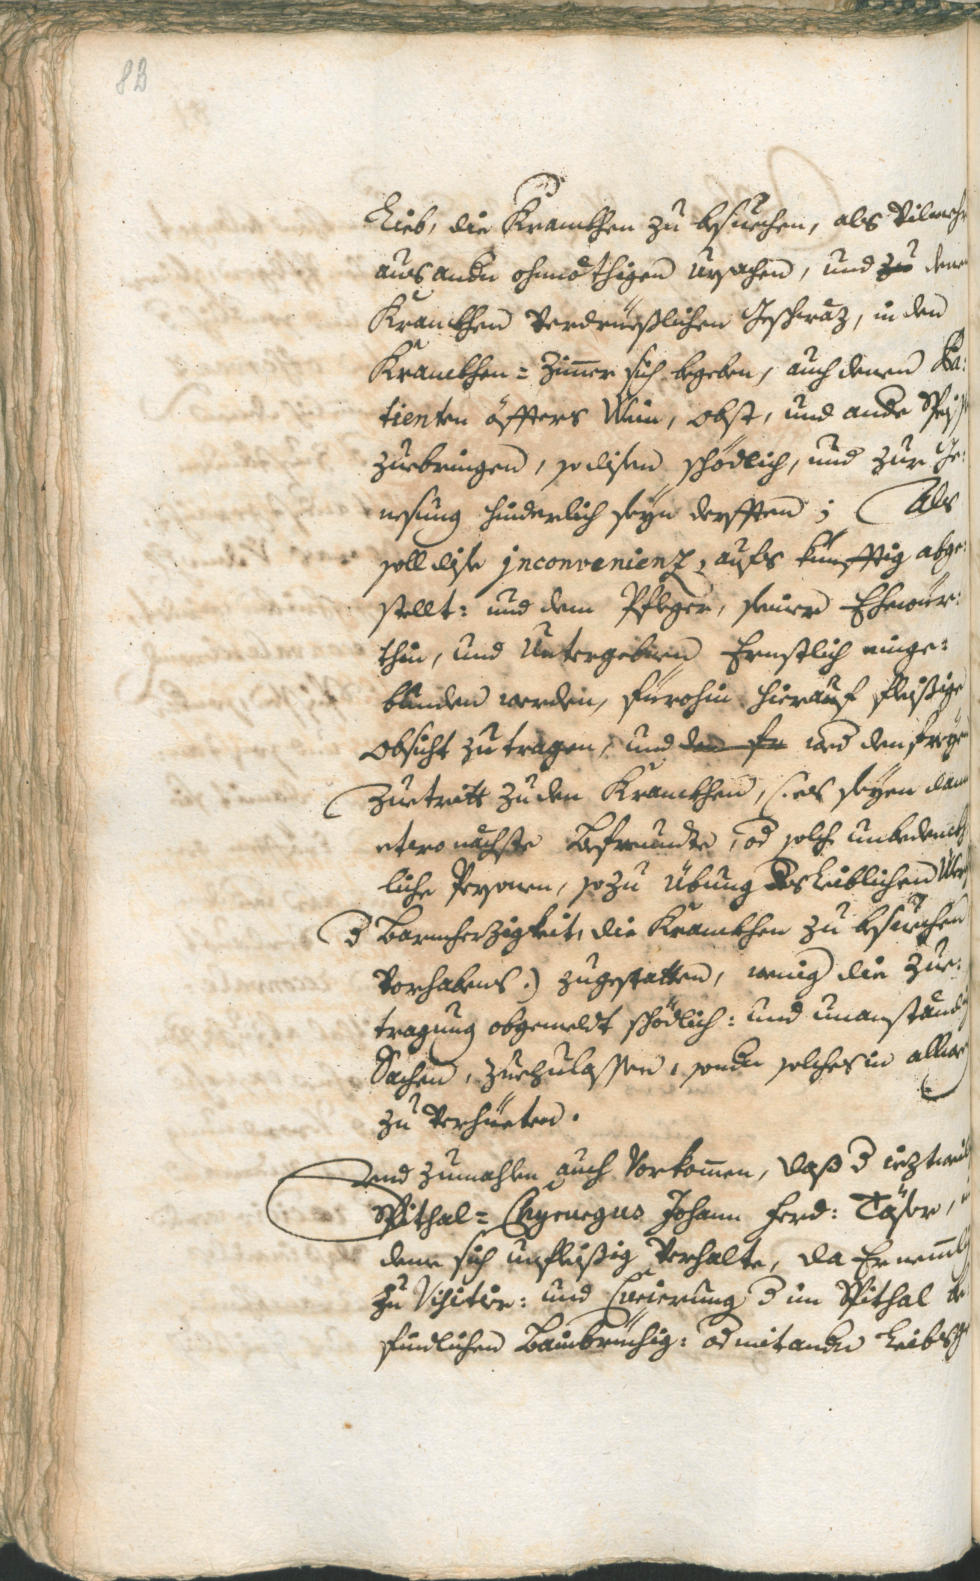 83
Lieb, die Krankhen zu besuechen, als Vilmehr
aus andn ohnnöthigen ursachen, und zu denen
Krankhen Verdrüeßlichen Geschwäz, in den
Krankhen=Zimer sich begeben, auch denen Pa:
tienten öffters Wein, obst, und ande Speis
zuebringen, so disen schödlich, und zur Ge:
nesung hinderlich seyn derfften; Als
soll dise inconvenienz, aufs künfftig abge:
stellt: und dem Pfleger, seiner Ehewür:
thin, und Untergebnen Ernstlich einge:
bunden werden, fürohin hierauf fleißige
obsicht zu tragen, und den fr wed den freyen
Zuetritt zu den Krankhen, (: es seyen dan
etwo nächste Befreundte, od solch unbedenckh
liche Persohnen, so zu übung des leiblichen
d Barmherzigkeit, die Krankhen zu besuechen
Vorhabens.) zugestatten, wenig die Zue:
tragung obgemeldt schödlich: und unanständig
Sachen, zuezulassen, sondn solches in allweg
zu Verhüeten.
Und zumahlen auch Vorkomen, daß d ieztweil
Spithal=Chyrurgus Johann Ferd: Täser,
deme sich unfleißig Verhalte, da Er neml
zu Visitir: und Curierung d im Spithal be
findlichen Bainbrüchig: od mit andn Leibs